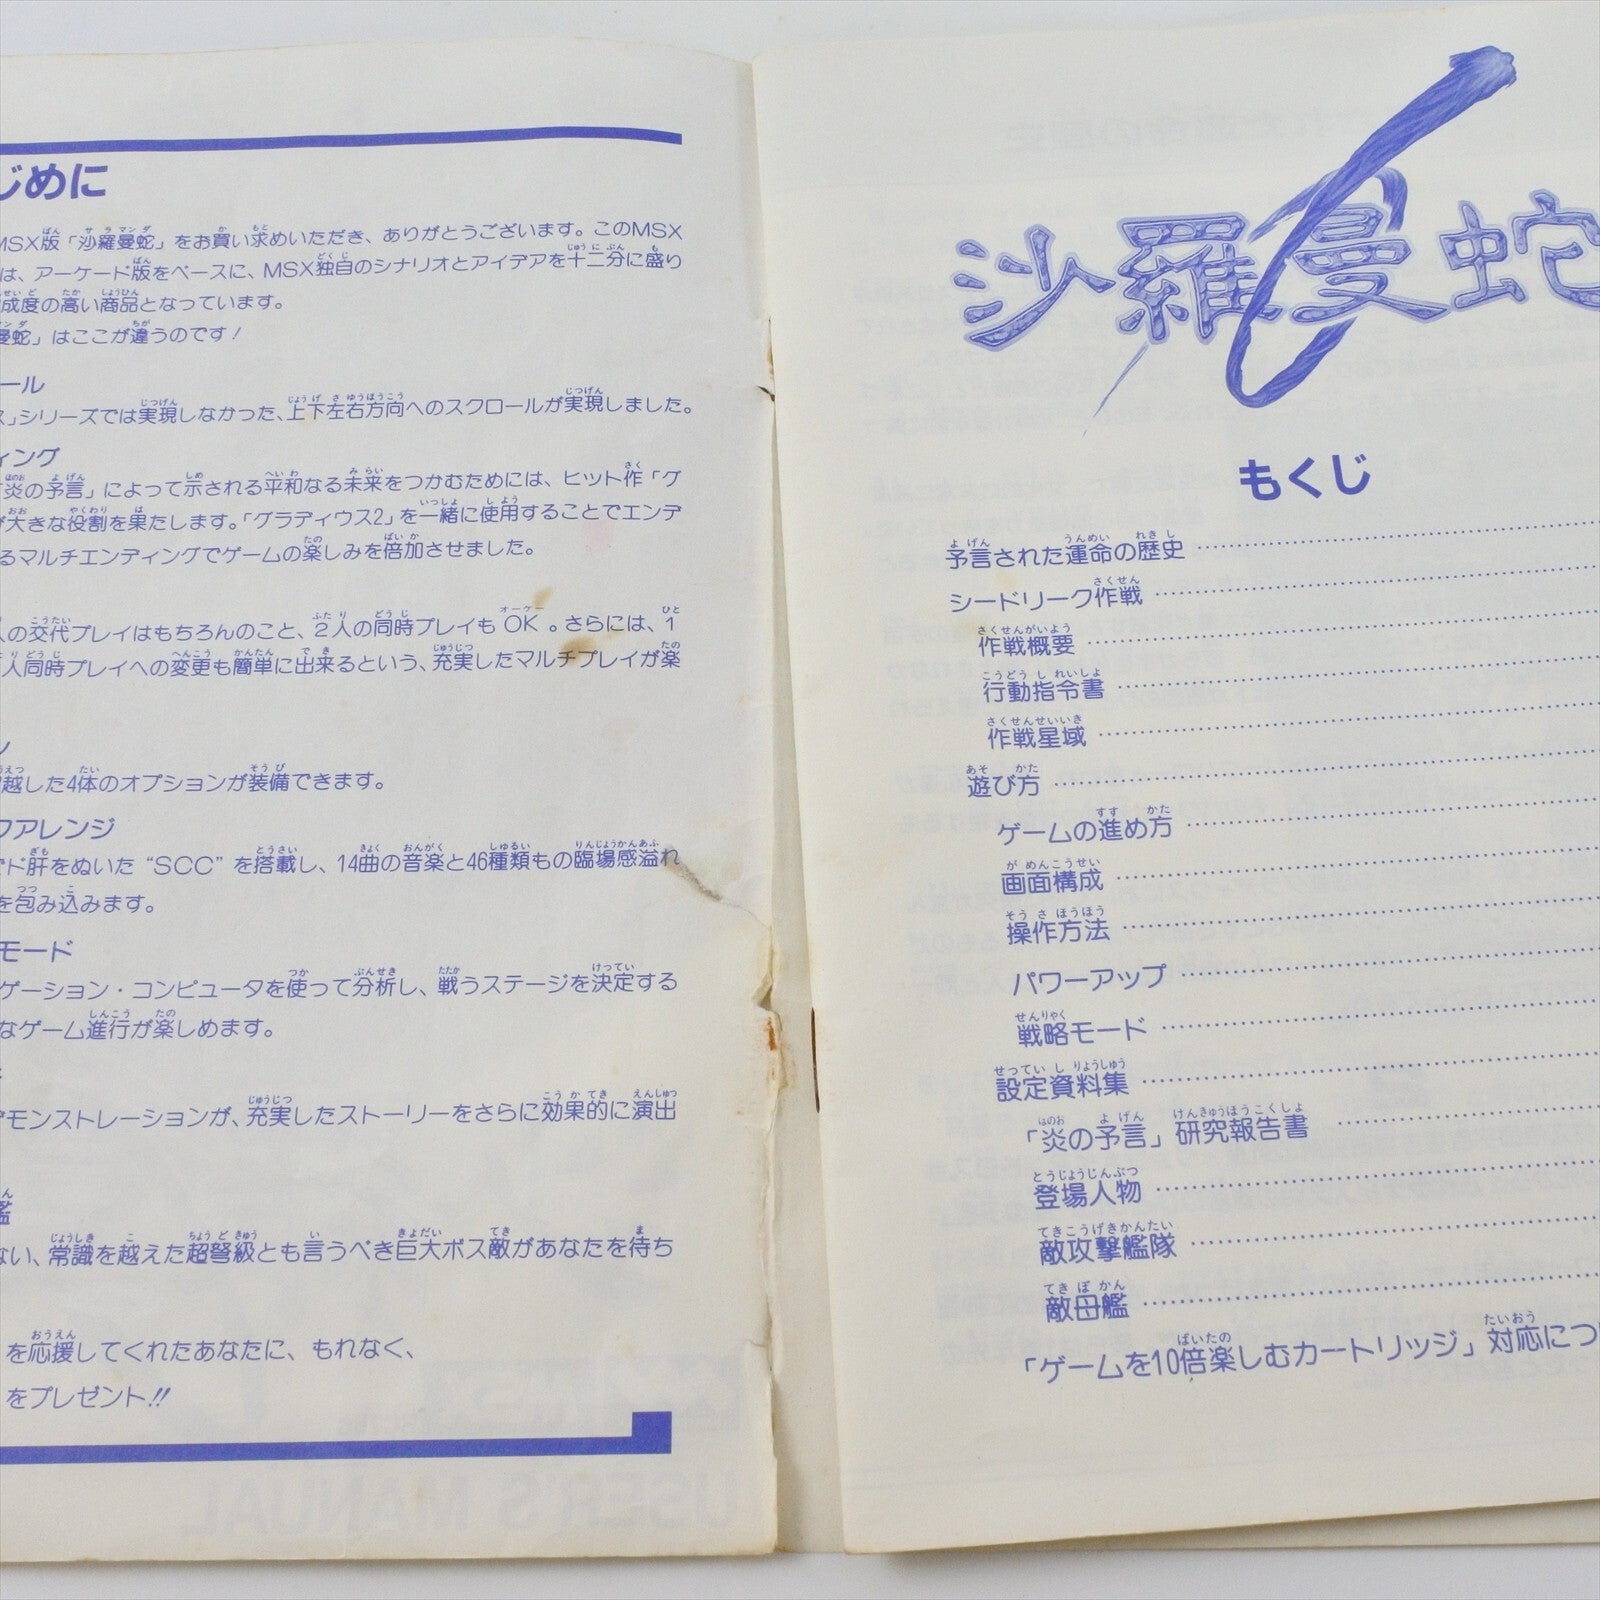 じめに
MSX版「沙羅曼蛇」をお買い求めいただき、ありがとうございます。このMSX
は、アーケード版をベースに、MSX独自のシナリオとアイデアを十二分に盛り
成度の高い商品となっています。
曼蛇」はここが違うのです!
ール
ス」シリーズでは実現しなかった、上下左右方向へのスクロールが実現しました。
ィング
「炎の予言」によって示される平和なる未来をつかむためには、ヒット作「グ
が大きな役割を果たします。「グラディウス2」を一緒に使用することでエンデ
るマルチエンディングでゲームの楽しみを倍加させました。
人の交代プレイはもちろんのこと、2人の同時プレイもOK。さらには、1
人同時プレイへの変更も簡単に出来るという、充実したマルチプレイが楽
ン
越した4体のオプションが装備できます。
クアレンジ
ド肝をぬいた“SCC”を搭載し、14曲の音楽と46種類もの臨場感溢れ
を包み込みます。
モード
ゲーション・コンピュータを使って分析し、戦うステージを決定する
なゲーム進行が楽しめます。
デモンストレーションが、充実したストーリーをさらに効果的に演出
艦
ない、常識を越えた超弩級とも言うべき巨大ボス敵があなたを待ち
を応援してくれたあなたに、もれなく、
をプレゼント!!
沙羅曼蛇
もくじ
予言された運命の歴史
シードリーク作戦
作戦概要
行動指令書
作戦星域
遊び方
ゲームの進め方
画面構成
操作方法
パワーアップ
戦略モード
設定資料集
「炎の予言」研究報告書
登場人物
敵攻撃艦隊
敵母艦
「ゲームを10倍楽しむカートリッジ」対応につ